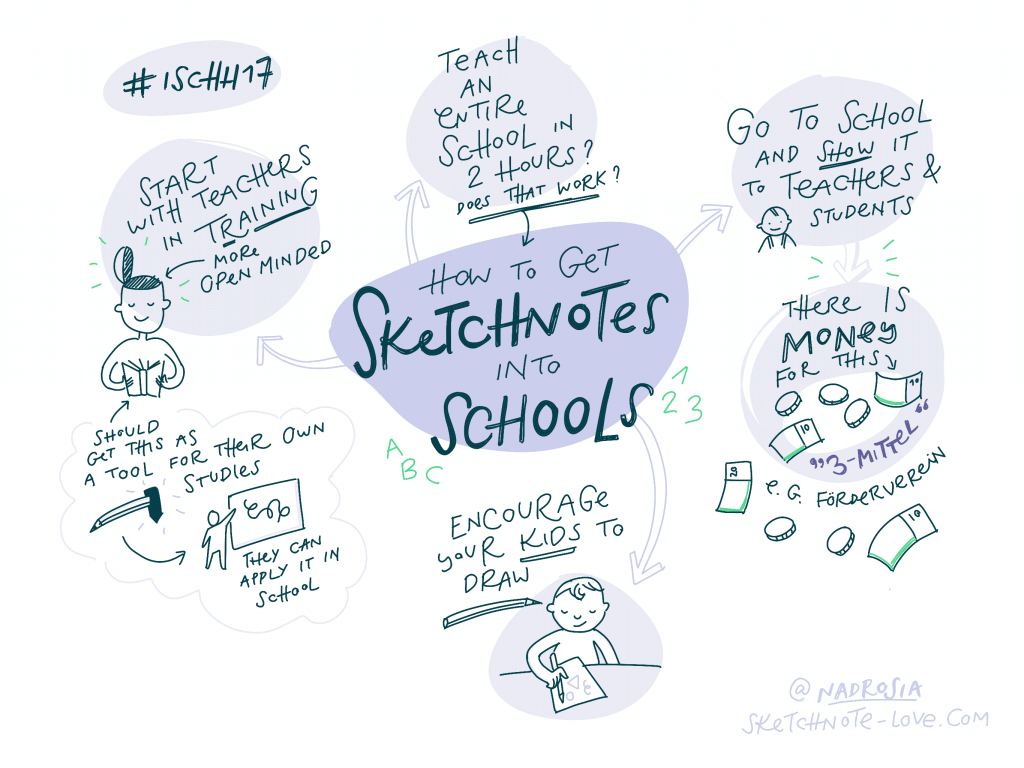 #ISCHH17
TEACH
AN
ENTIRE
SCHOOL IN
2 HOURS?
DOES THAT WORK?
GO TO SCHOOL
AND SHOW IT
TO TEACHERS &
STUDENTS
START
WITH TEACHERS
IN TRAINING
MORE
OPEN MINDED
HOW TO GET
SKETCHNOTES
INTO
SCHOOLS
1
2 3
A
B
C
THERE IS
MONEY
FOR THIS
10
10
„3-MITTEL“
10
E.G. FÖRDERVEREIN
10
SHOULD
GET THIS AS
A TOOL FOR THEIR OWN
STUDIES
THEY CAN
APPLY IT IN
SCHOOL
ENCOURAGE
YOUR KIDS TO
DRAW
@NADROSIA
SKETCHNOTE-LOVE.COM